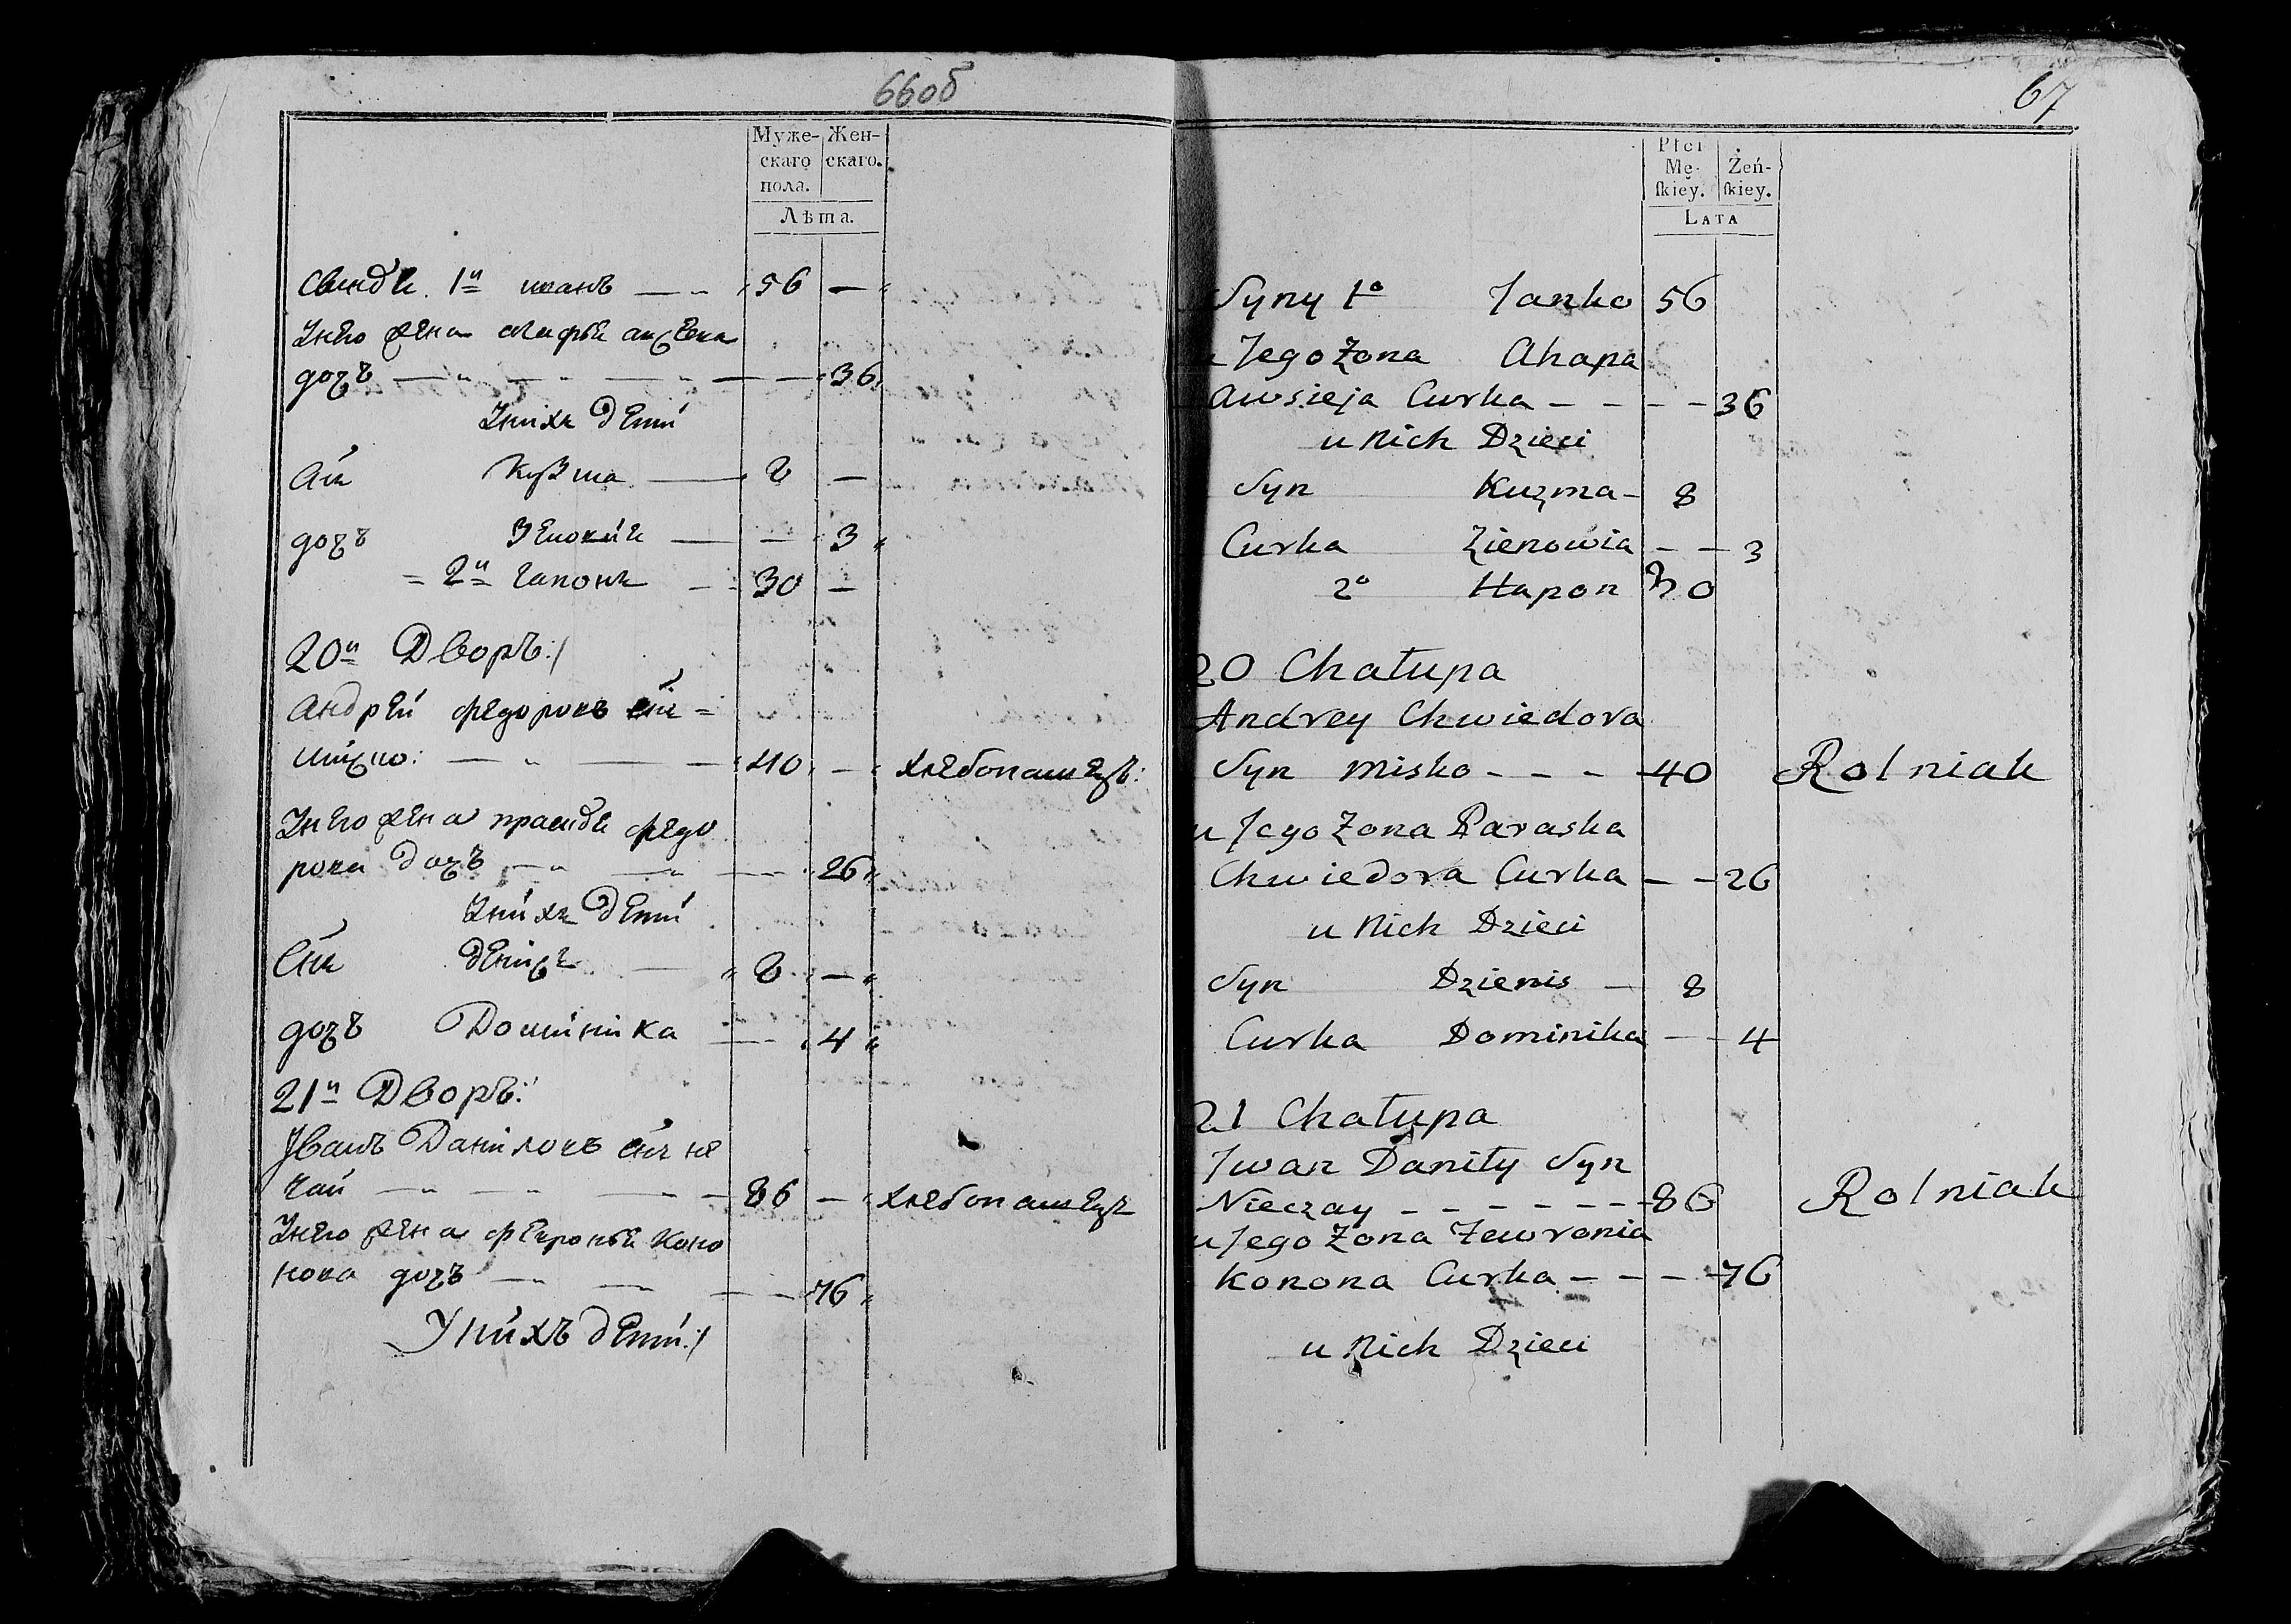 66об
Муже- Жен-
скаго скаго.
пола.
Лѣта.
1й иванъ — 56 —
жена
дочъ — 36
детй
Кузма — 8 —
дочъ — 3
2й гапонъ — 30 —
20й Дворъ:/
Андрей федоровъ снъ
40 — хлебопашецъ:
жена федо
рова дочъ — 26
детй
Снъ денисъ — 8 —
дочъ Доминика — 4
21й Дворъ:
Иванъ Данiловъ снъ не
чай — 86 — хлебопашецъ
жена Коно
нова дочъ — 76
Унихъ детй:/
67
Płci
Mę- Żeń-
skiey. skiey.
LATA
Syny 1º Janko 56
u Jego Żona Ahapa
Awsieja Curka - - - - 36
u Nich Dzieci
Syn Kuzma - 8
Curka Zienowia - - 3
2º Hapon 30
20 Chałupa
Andrey Chwiedora
Syn Misko - - - - 40 Rolniak
u Jego Żona Paraska
Chwiedora Curka - - 26
u Nich Dzieci
Syn Dzienis - 8
Curka Dominika - - 4
21 Chałupa
Iwan Daniły Syn
Nieczay - - - - - - 86 Rolniak
u Jego Żona Zewronia
Konona Curka - - - - 76
u Nich Dzieci